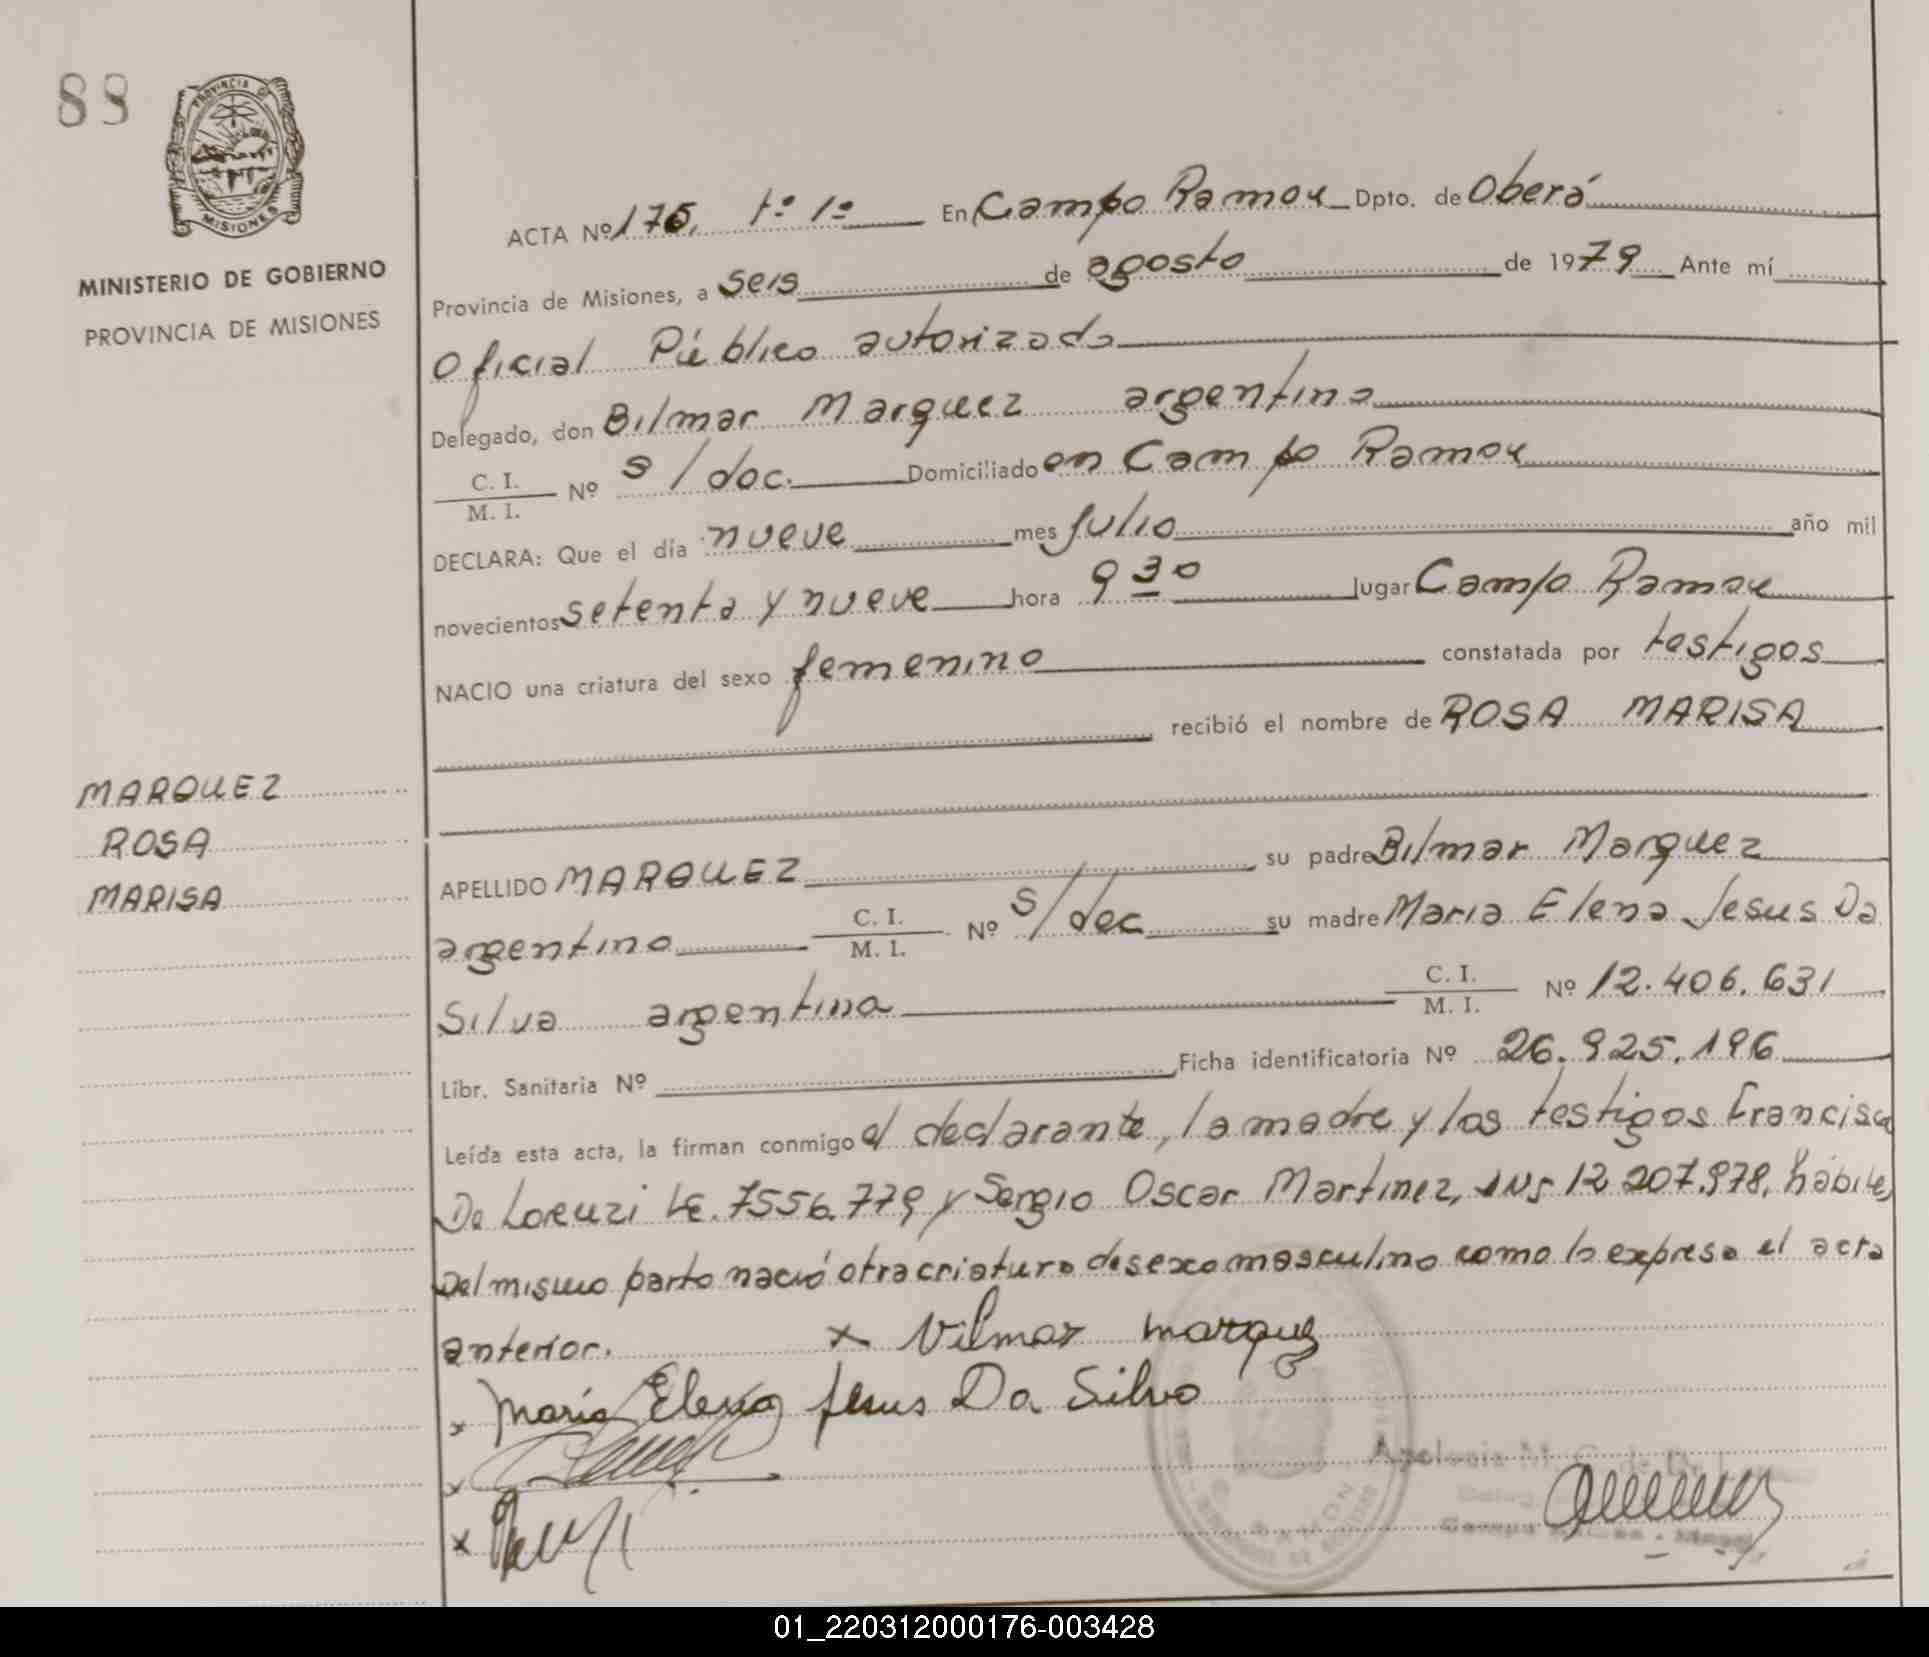 88
PROVINCIA DE
MISIONES
MINISTERIO DE GOBIERNO
PROVINCIA DE MISIONES
ACTA Nº 176, tº 1º En Campo Ramon Dpto. de Oberá
Provincia de Misiones, a seis de agosto de 1979 Ante mí
Oficial Público autorizado
Delegado, don Bilmar Marquez argentino
C. I.
M. I. Nº s/doc. Domiciliado en Campo Ramon
DECLARA: Que el día nueve mes Julio año mil
novecientos setenta y nueve hora 9 30 lugar Campo Ramon
NACIO una criatura del sexo femenino constatada por testigos
recibió el nombre de ROSA MARISA
MARQUEZ
ROSA
MARISA
APELLIDO MARQUEZ su padre Bilmar Marquez
argentino C. I. M. I. Nº s/doc su madre Maria Elena Jesus Da
Silva argentina C. I. M. I. Nº 12.406.631
Libr. Sanitaria Nº Ficha identificatoria Nº 26.925.196
Leída esta acta, la firman conmigo el declarante, la madre y los testigos Francisco
De Lorenzi LE. 7556.779 y Sergio Oscar Martinez, 12.207.978, hábiles
Del mismo parto nació otra criatura de sexo masculino como lo expresa el acta
anterior. x Vilmar Marquez
x María Elena Jesus Da Silva
x
x
01_220312000176-003428